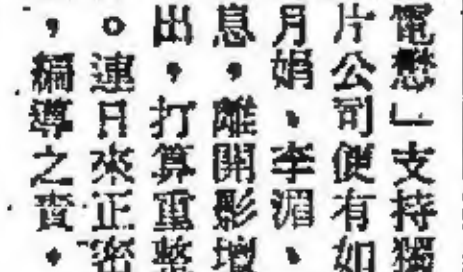 電懋」支持獨
片公司便有如
月娟、李湄、
息，離開影壇
出，打算重整
。連日來正密
，編導之責，